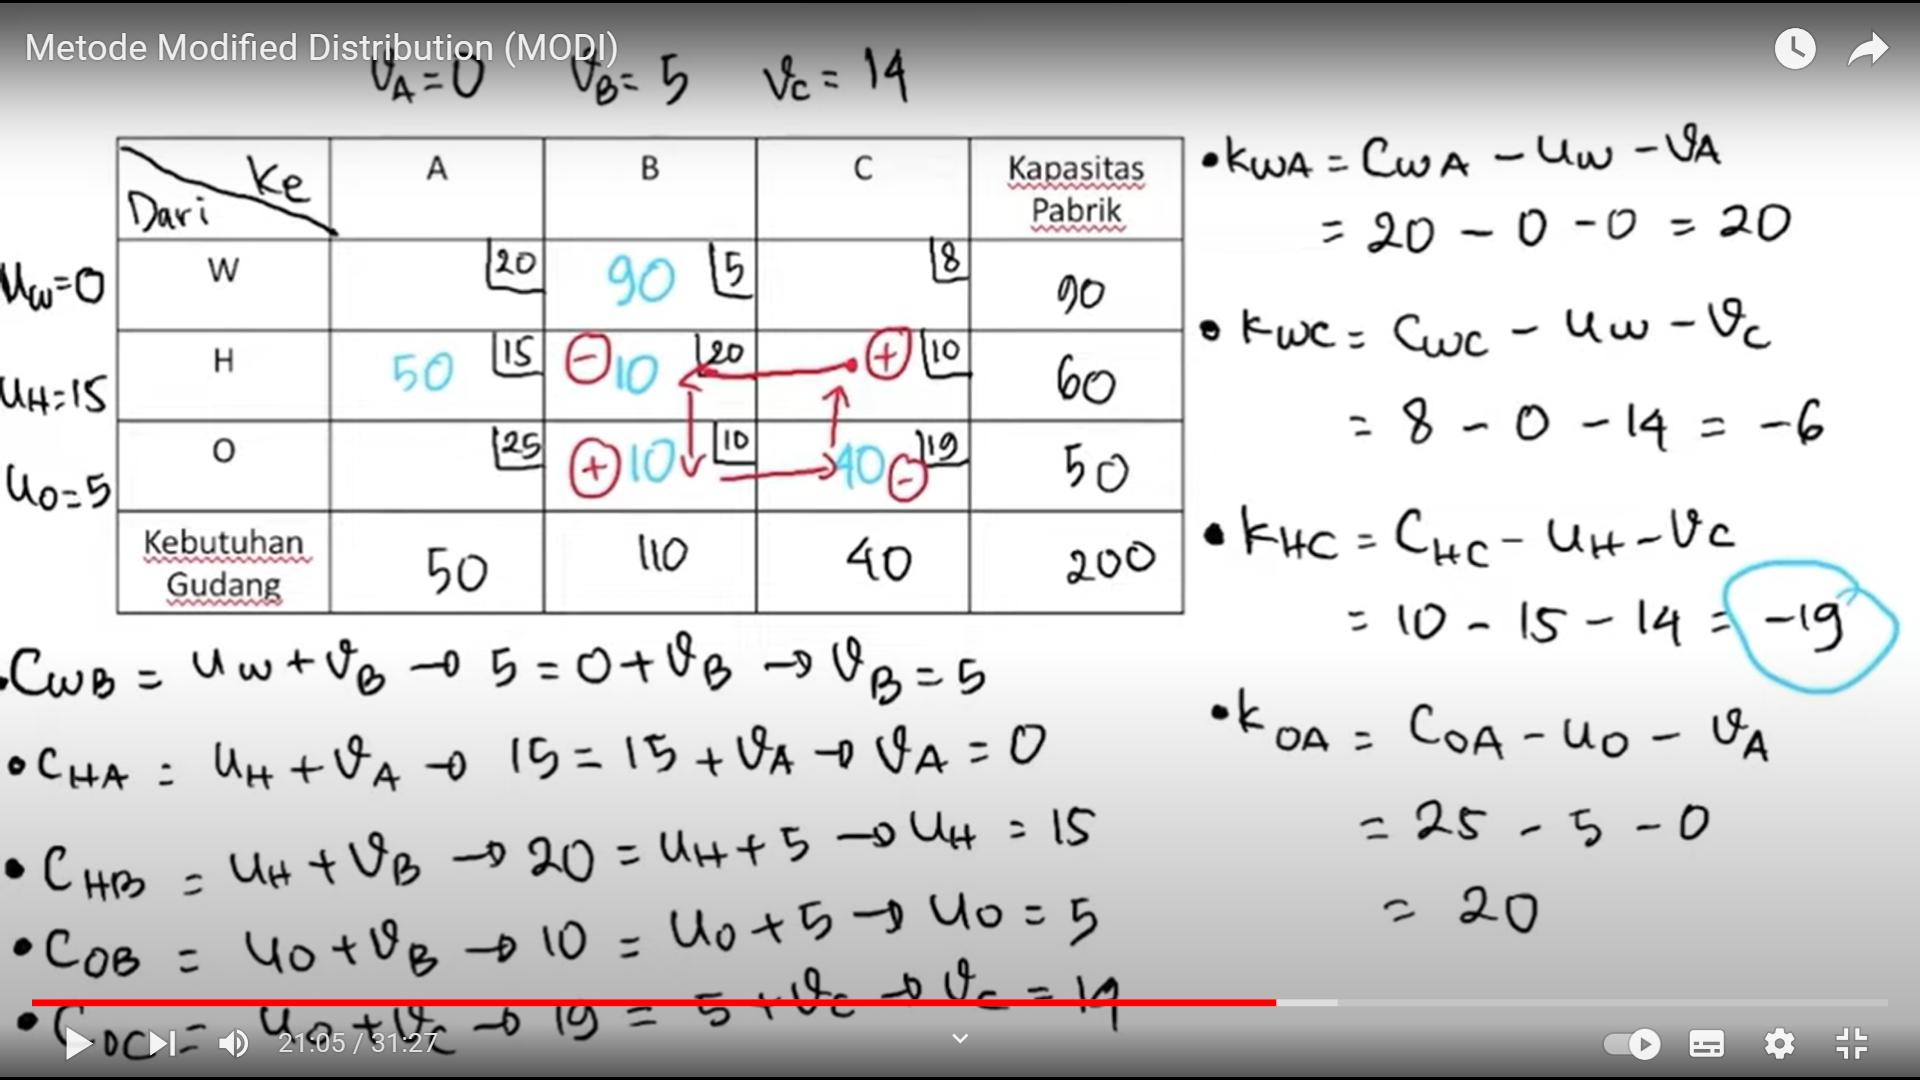 Metode Modified Distribution (MODI)
VA = 0 VB = 5 VC = 14
Ke
Dari
A B C Kapasitas Pabrik
UW = 0 W 20 90 5 8 90
UH = 15 H 50 15 - 10 20 + 10 60
UO = 5 O 25 + 10 10 40 - 19 50
Kebutuhan Gudang 50 110 40 200
• CWB = UW + VB → 5 = 0 + VB → VB = 5
• CHA = UH + VA → 15 = 15 + VA → VA = 0
• CHB = UH + VB → 20 = UH + 5 → UH = 15
• COB = UO + VB → 10 = UO + 5 → UO = 5
• COC = UO + VC → 19 = 5 + VC → VC = 14
• KWA = CWA - UW - VA
= 20 - 0 - 0 = 20
• KWC = CWC - UW - VC
= 8 - 0 - 14 = -6
• KHC = CHC - UH - VC
= 10 - 15 - 14 = -19
• KOA = COA - UO - VA
= 25 - 5 - 0
= 20
21:05 / 31:27